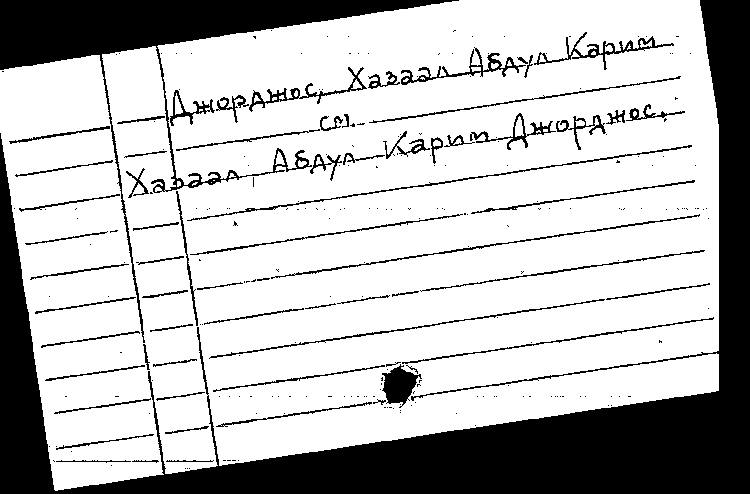 Джорджос, Хазаал Абдул Карим
см.
Хазаал, Абдул Карим Джорджос.